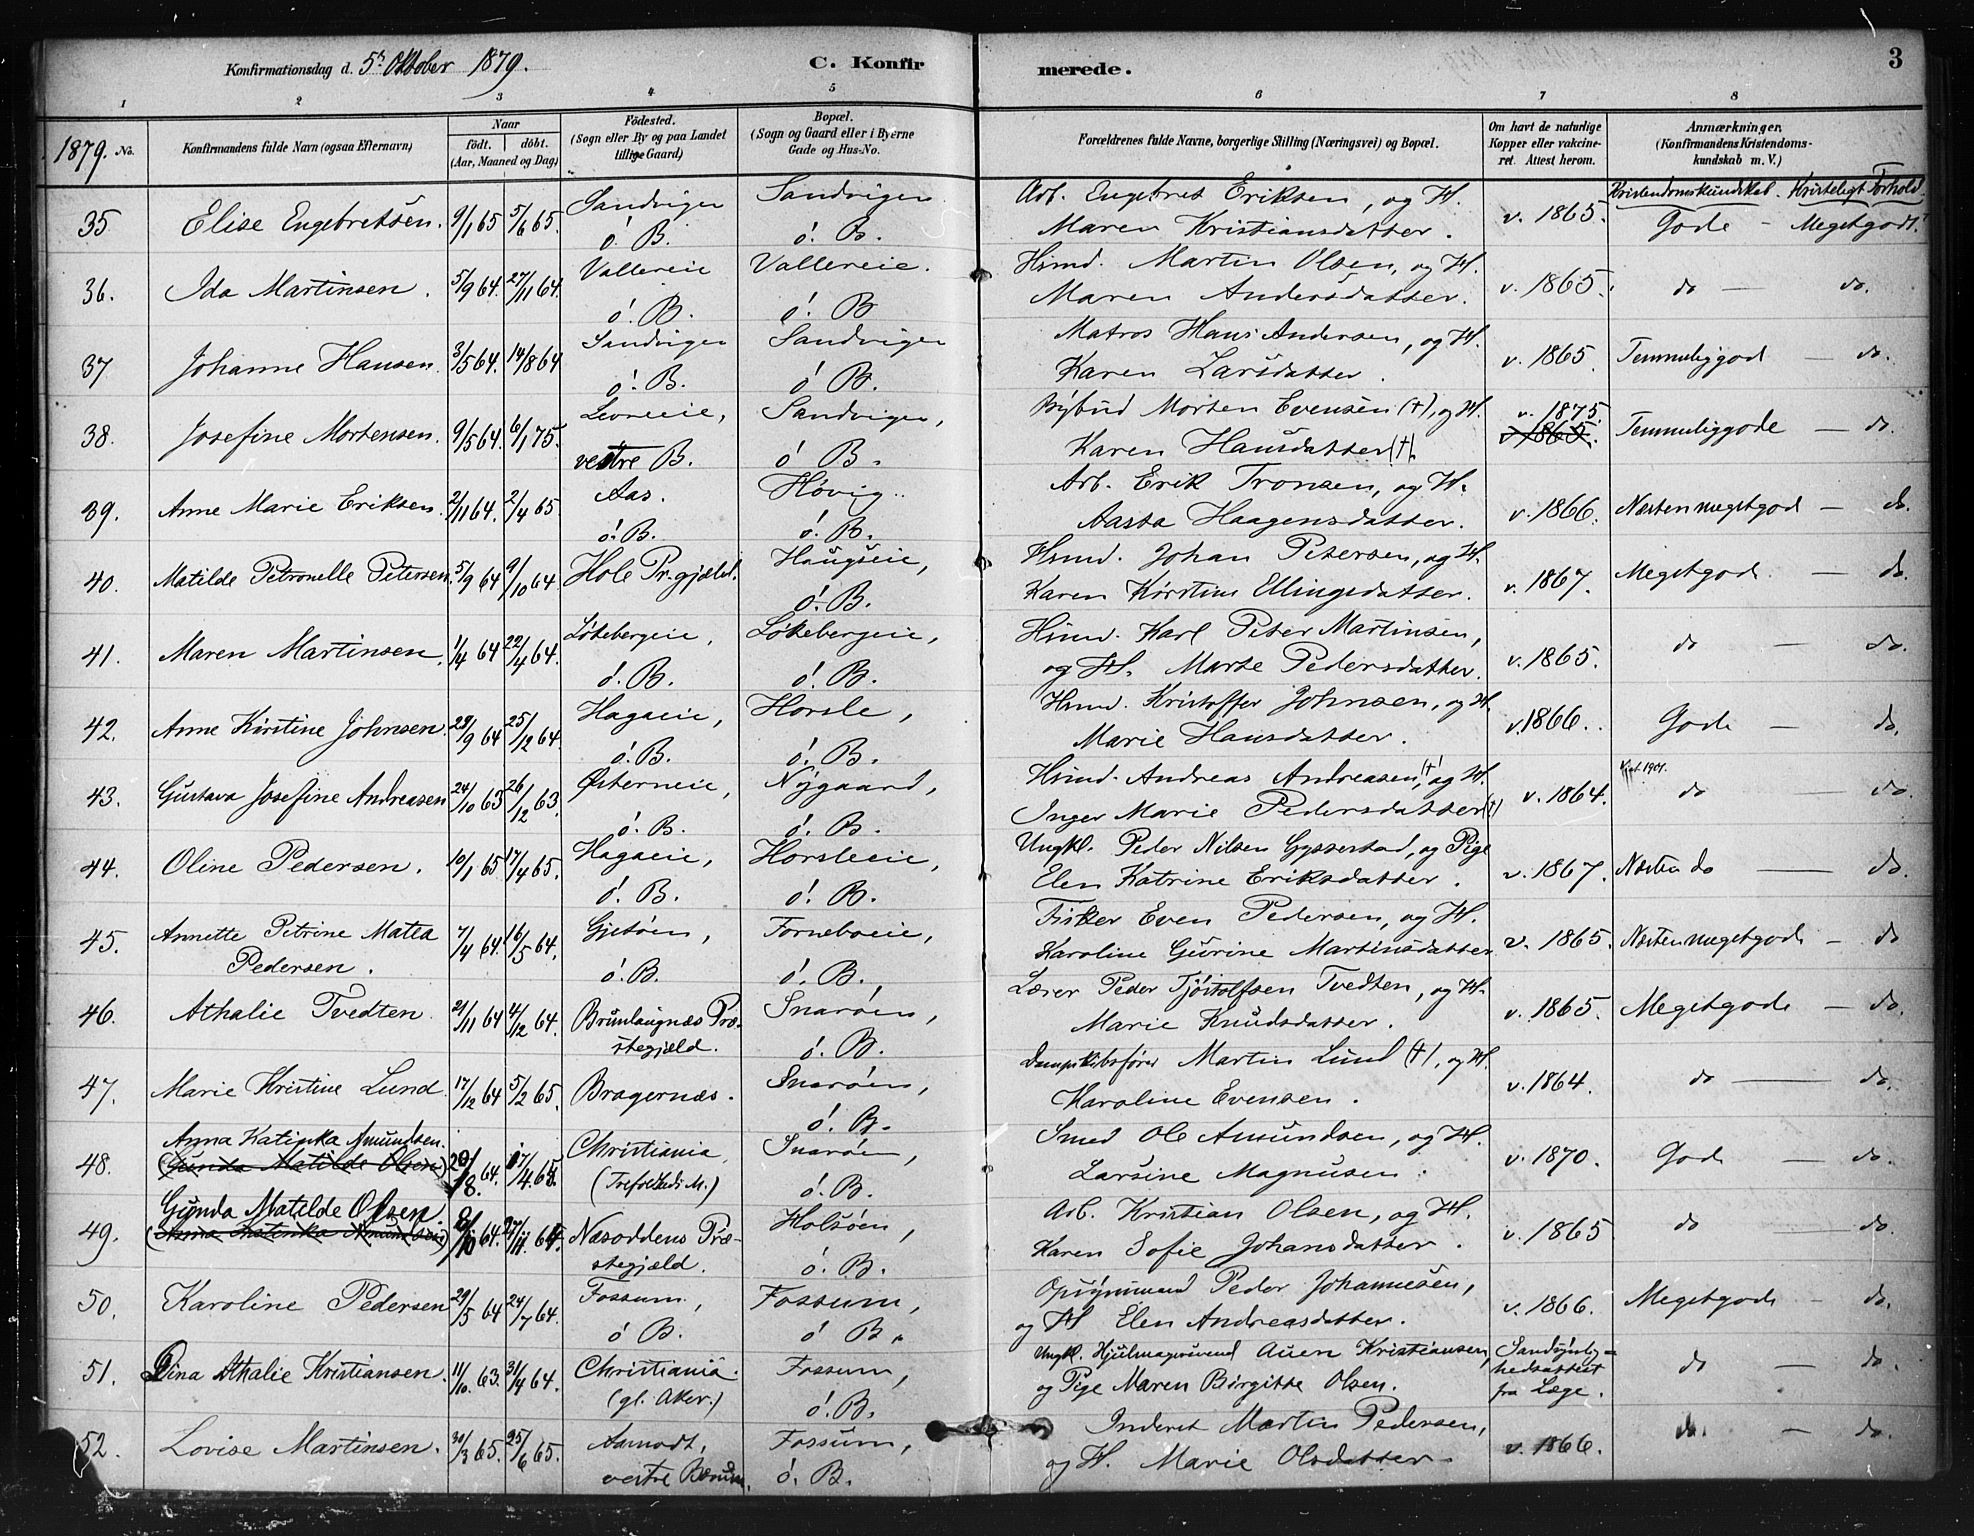 Konfirmationsdag d. 5t Oktober 1879. C. Konfirmerede. 3
1 2 3 4 5 6 7 8
1879. No. Konfirmandens fulde Navn (ogsaa Efternavn) Naar født. døbt. (Aar, Maaned og Dag) Fødested. (Sogn eller By og paa Landet tillige Gaard) Bopæl. (Sogn og Gaard eller i Byerne Gade og Hus-No. Forældrenes fulde Navne, borgerlige Stilling (Næringsvei) og Bopæl. Om havt de naturlige Kopper eller vakcineret. Attest herom. Anmærkninger. (Konfirmandens Kristendomskundskab m. V.)
Kristendomskundskab. Kristeligt Forhold
35 Elise Engebretsen. 9/1 65 5/6 65. Sandvigen ö. B. Sandvigen ö. B. Arb. Engebret Eriksen, og H. Maren Kristiansdatter. v. 1865. Gode - Megetgodt.
36. Ida Martinsen. 5/9 64. 27/11 64. Vallereie ö. B. Vallereie. ö. B Hsmd. Martin Olsen, og H. Maren Andersdatter. v. 1865. do — do.
37 Johanne Hansen. 3/5 64. 14/8 64 Sandvigen ö. B. Sandvigen ö B. Matros Hans Andersen, og H. Karen Larsdatter. v. 1865 Temmeliggod — do.
38. Josefine Mortensen. 9/5 64. 6/1 75. Levreeie, vestre B. Sandvigen, ö B. Morten Evensen (†), og H. Karen Hansdatter (†). v. 1875. v 1865. Temmeliggode — do.
39. Anne Marie Eriksen. 2/11 64. 2/4 65 Aas. ö. B. Høvig. ö. B. Arb. Erik Tronsen, og H. Aasta Haagensdatter. v. 1866. Næsten megetgod — do.
40. Matilde Petronelle Petersen. 5/9 64 9/10 64. Hole Pr.gjæld. Haugseie, ö. B. Hsmd. Johan Petersen, og H. Karen Kirstine Ellingsdatter. v. 1867. Megetgod. — do.
41. Maren Martinsen. 1/4 64 22/4 64. Løkebergeie, ö. B. Løkebergeie, ö. B. Hsmd. Karl Peter Martinsen, og H. Marte Pedersdatter. v. 1865. do — do.
42. Anne Kirstine Johnsen. 29/9 64 25/12 64. Hagaeie, ö. B. Horsle, ö. B. Hsmd. Kristoffer Johnsen, og H. Marie Hansdatter. v. 1866. Gode — do.
43. Gustava Josefine Andreasen 24/10 63 26/12 63. Østerneie, ö. B. Nygaard, ö. B. Hsmd. Andreas Andreasen, (†) og H. Inger Marie Pedersdatter (†) v. 1864. do — do.
44. Oline Pedersen. 10/1 65 17/4 65. Hagaeie, ö. B. Horsleeie, ö. B. Ungkl. Peder Nilsen Gysserstad, og Pige Elen Katrine Eriksdatter. v. 1867. Næsten do — do.
45. Annette Petrine Matea Pedersen. 7/4 64. 16/5 64. Gjetøen, ö. B. Forneboeie, ö. B. Fisker Even Pedersen, og H. Karoline Gurine Martinsdatter v. 1865. Næsten megetgode — do
46. Athalie Tvedten. 21/11 64 4/12 64. Brunlaugnæs Præstegjæld. Snarøen, ö. B. Lærer Peder Tjöstolfsen Tvedten, og H. Marie Knudsdatter. v. 1865. Megetgode — do.
47. Marie Kristine Lund. 17/12 64 5/2 65. Bragernæs. Snarøen, ö. B. Dampskibsfører Martin Lund (†), og H. Karoline Evensen. v. 1864. do — do.
48. Anna Katinka Amundsen. (Gunda Matilde Olsen) 20/8. 64. 17/4 65. Christiania, (Trefoldheds M.) Snarøen, ö. B. Smed Ole Amundsen, og H. Larsine Magnusen. v. 1870. Gode — do.
49. Gunda Matilde Olsen (Anna Katinka Amundsen) 8/10 64. 27/11 64. Næsoddens Præstegjæld. Holsøen, ö. B. Arb. Kristian Olsen, og H. Karen Sofie Johansdatter. v. 1865 do — do.
50. Karoline Pedersen 29/5 64 24/7 64. Fossum, ö B. Fossum, ö B. Opsynsmand Peder Johannesen, og H Elen Andreasdatter. v. 1866. Megetgode — do.
51. Dina Athalie Kristiansen. 11/10 63. 31/4 64. Christiania. (gl. Aker.) Fossum, ö. B. Ungkl. Hjulmagersvend Auen Kristiansen, og Pige Maren Birgitte Olsen. Sandsynlighedsattest fra Læge. do — do.
52. Lovise Martinsen. 30/3 65. 25/6 65. Aamodt, vestre Bærum. Fossum, ö. B. Inderst Martin Pedersen, og H. Marie Olsdatter. v. 1866. do. — do.